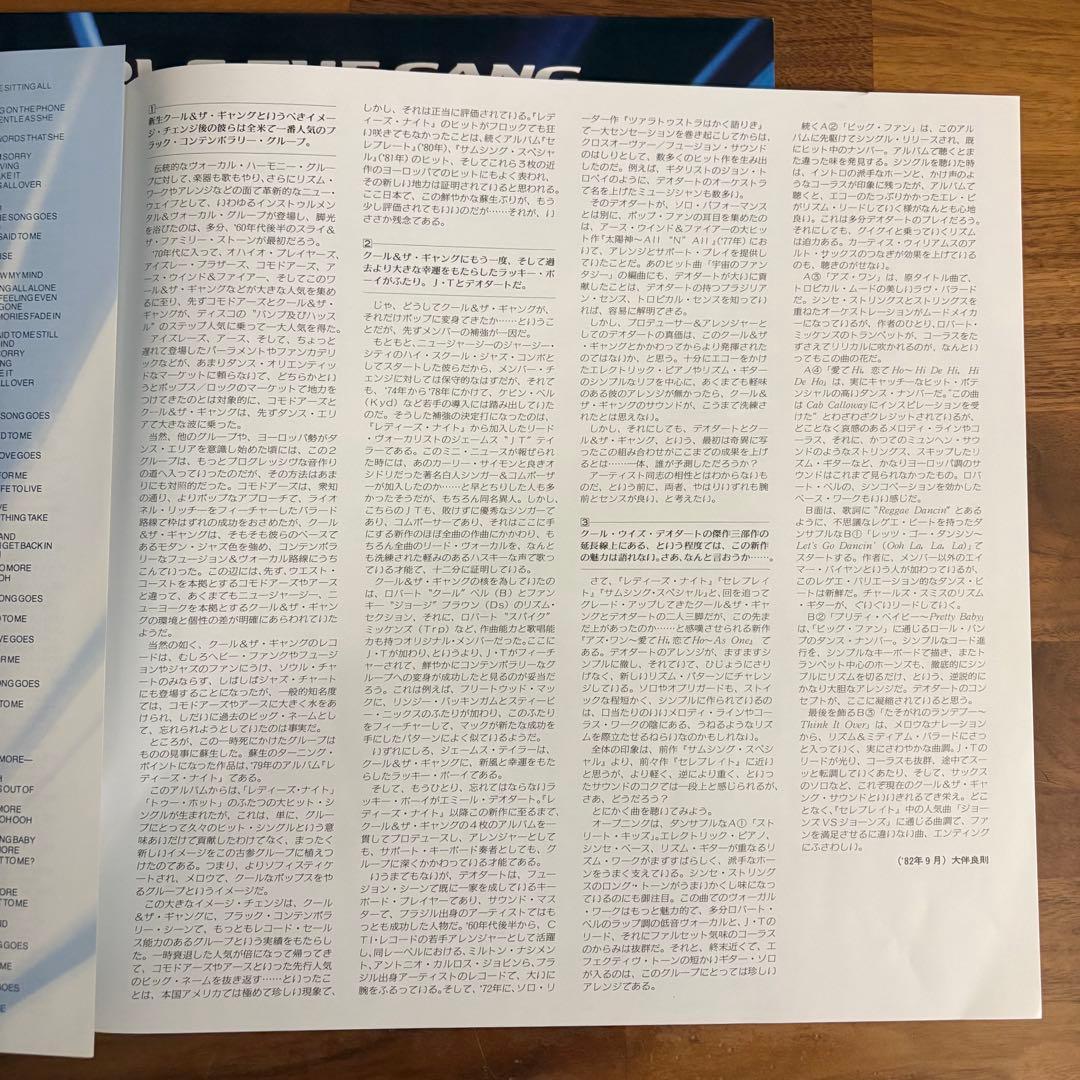 & THE GANG
E SITTING ALL
G ON THE PHONE
ENTLE AS SHE
WORDS THAT SHE
M SORRY
VING
AKE IT
ALL OVER
E SONG GOES
SAID TO ME
RISE
W MY MIND
NG ALL ALONE
FEELING EVEN
GONE
MORIES FADE IN
D TO ME STILL
IND
SORRY
NG
E IT
LL OVER
SONG GOES
D TO ME
OVE GOES
FOR ME
FE TO LIVE
VE
THING TAKE
AND
GET BACK IN
H
OOH
NG GOES
D TO ME
OVE GOES
OR ME
ONG GOES
MORE—
H
S OUT OF
MORE
OH OOH
NG BABY
MORE
T TO ME?
ORE
T TO ME
ID
GOES
ME
GOES
1
新生クール&ザ・ギャングというべきイメー
ジ・チェンジ後の彼らは全米で一番人気のブ
ラック・コンテンポラリー・グループ。
伝統的なヴォーカル・ハーモニー・グルー
プに対して、楽器も歌もやり、さらにリズム・
ワークやアレンジなどの面で革新的なニュー・
ウェイブとして、いわゆるインストゥルメン
タル&ヴォーカル・グループが登場し、脚光
を浴びたのは、多分、'60年代後半のスライ&
ザ・ファミリー・ストーンが最初だろう。
'70年代に入って、オハイオ・プレイヤーズ、
アイズレー・ブラザーズ、コモドアーズ、ア
ース・ウインド&ファイアー、そしてこのクー
ル&ザ・ギャングなどが大きな人気を集め
るに至り、先ずコモドアーズとクール&ザ・
ギャングが、ディスコの“バンプ及びハッス
ル”のステップ人気に乗って一大人気を得た。
アイズレーズ、アース、そして、ちょっと
遅れて登場したパーラメントやファンカデリ
ックなどが、あまりダンス・オリエンティッ
ドなマーケットに頼らないで、どちらかとい
うとポップス/ロックのマーケットで地力を
つけてきたのとは対象的に、コモドアーズと
クール&ザ・ギャングは、先ずダンス・エリ
アで大きな波に乗った。
当然、他のグループや、ヨーロッパ勢がダ
ンス・エリアを意識し始めた頃には、この2
グループは、もっとプログレッシヴな音作り
の道へ入っていったのだが、その方法はあま
りにも対照的だった。コモドアーズは、衆知
の通り、よりポップなアプローチで、ライオ
ネル・リッチーをフィーチャーしたバラード
路線で枠はずれの成功をおさめたが、クール
&ザ・ギャングは、そもそも彼らのベースで
あるモダン・ジャズ色を強め、コンテンポラ
リーなフュージョン&ヴォーカル路線にうち
こんでいった。この辺には、先ず、ウエスト・
コーストを本拠とするコモドアーズやアース
と違って、あくまでもニュージャージー、ニ
ューヨークを本拠とするクール&ザ・ギャン
グの環境と個性の差が明確にあらわれていた
ようだ。
当然の如く、クール&ザ・ギャングのレコ
ードは、むしろヘビー・ファンクやフュージ
ョンやジャズのファンにうけ、ソウル・チャー
トのみならず、しばしばジャズ・チャート
にも登場することになったが、一般的知名度
では、コモドアーズやアースに大きく水をあ
けられ、しだいに過去のビッグ・ネームとし
て、忘れられようとしていたのは事実だ。
ところが、この一時死にかけたグループは
ものの見事に蘇生した。蘇生のターニング・
ポイントになった作品は、'79年のアルバム『レ
ディーズ・ナイト』である。
このアルバムからは、「レディーズ・ナイト」
「トゥー・ホット」のふたつの大ヒット・シ
ングルが生まれたが、これは、単に、グルー
プにとって久々のヒット・シングルという意
味あいだけで貢献したわけでなく、まったく
新しいイメージをこの古参グループに植えつ
けたのである。つまり、よりソフィスティケ
ートされ、メロウで、クールなポップスをや
るグループというイメージだ。
この大きなイメージ・チェンジは、クール
&ザ・ギャングに、ブラック・コンテンポラ
リー・シーンで、もっともレコード・セール
ス能力のあるグループという実績をもたらし
た。一時衰退した人気が倍になって帰ってき
て、コモドアーズやアースといった先行人気
のビッグ・ネームを抜き返す……といったこ
とは、本国アメリカでは極めて珍しい現象で、
しかし、それは正当に評価されている。『レデ
ィーズ・ナイト』のヒットがフロックでも狂
い咲きでもなかったことは、続くアルバム『セ
レブレート』('80年)、『サムシング・スペシャ
ル』('81年)のヒット、そしてこれら3枚の近
作のヨーロッパでのヒットにもよく表われ、
その新しい地力は証明されていると思われる。
ここ日本で、この鮮やかな蘇生ぶりが、もう
少し評価されてもいいのだが……それが、い
ささか残念である。
2
クール&ザ・ギャングにもう一度、そして過
去より大きな幸運をもたらしたラッキー・ボ
ーイがふたり。J・Tとデオダートだ。
じゃ、どうしてクール&ザ・ギャングが、
それだけポップに変身できたか……というこ
とだが、先ずメンバーの補強が一因だ。
もともと、ニュージャージーのジャージー・
シティのハイ・スクール・ジャズ・コンボと
してスタートした彼らだから、メンバー・チ
ェンジに対しては保守的なはずだが、それで
も、'74年から'78年にかけて、ケビン・ベル
(Kyd)など若手の導入には踏み出していた
のだ。そうした補強の決定打になったのは、
『レディーズ・ナイト』から加入したリード
・ヴォーカリストのジェームス“JT”テイ
ラーである。このミニ・ニュースが報ぜられ
た時には、あのカーリー・サイモンと良きオ
シドリだった著名白人シンガー&コムポーザ
ーが加入したのか……と早とちりした人も多
かったそうだが、もちろん同名異人。しかし、
こちらのJTも、敗けずに優秀なシンガーで
あり、コムポーザーであり、それはここに手
にする新作のほぼ全曲の作曲にかかわり、も
ちろん全曲のリード・ヴォーカルを、なんと
も洗練された軽みのあるハスキーな声で歌っ
ている才能で、十二分に証明している。
クール&ザ・ギャングの核を為していたの
は、ロバート“クール”ベル(B)とファン
キー“ジョージ”ブラウン(Ds)のリズム・
セクション、それに、ロバート“スパイク”
ミッケンズ(Trp)など、作曲能力と歌唱能
力も持つオリジナル・メンバーだった。ここに
J・Tが加わり、というより、J・Tがフィーチ
ャーされて、鮮やかにコンテンポラリーなグ
ループへの変身が成功したと見るのが妥当だ
ろう。これは例えば、フリートウッド・マッ
クに、リンジー・バッキンガムとスティービ
ー・ニックスのふたりが加わり、このふたり
をフィーチャーして、マックが新たな成功を
手にしたパターンによく似ているようだ。
いずれにしろ、ジェームス・テイラーは、
クール&ザ・ギャングに、新風と幸運をもた
らしたラッキー・ボーイである。
そして、もうひとり、忘れてはならないラ
ッキー・ボーイがエミール・デオダート。『レ
ディーズ・ナイト』以降この新作に至るまで、
クール&ザ・ギャングの4枚のアルバムを一
貫してプロデュースし、アレンジャーとして
も、サポート・キーボード奏者としても、グ
ループに深くかかわっている才能である。
いうまでもないが、デオダートは、フュー
ジョン・シーンで既に一家を成しているキー
ボード・プレイヤーであり、サウンド・マス
ターで、ブラジル出身のアーティストではも
っとも成功した人物だ。'60年代後半から、C
TI・レコードの若手アレンジャーとして活躍
し、同レーベルにおける、ミルトン・ナシメン
ト、アントニオ・カルロス・ジョビンら、ブラ
ジル出身アーティストのレコードで、大いに
腕をふるっている。そして、'72年に、ソロ・リ
ーダー作『ツァラトゥストラはかく語りき』
で一大センセーションを巻き起こしてからは、
クロスオーヴァー/フュージョン・サウンド
のはしりとして、数多くのヒット作を生み出
したのだ。例えば、ギタリストのジョン・ト
ロペイのように、デオダートのオーケストラ
で名を上げたミュージシャンも数多い。
そのデオダートが、ソロ・パフォーマンス
とは別に、ポップ・ファンの耳目を集めたの
は、アース・ウインド&ファイアーの大ヒッ
ト作『太陽神〜All “N” All』('77年)にお
いて、アレンジとサポート・プレイを提供し
ていたことだ。あのヒット曲「宇宙のファン
タジー」の編曲にも、デオダートが大いに貢
献したことは、デオダートの持つブラジリア
ン・センス、トロピカル・センスを知ってい
れば、容易に解明できる。
しかし、プロデューサー&アレンジャーと
してのデオダートの真価は、このクール&ザ
・ギャングとかかわってからより発揮された
のではないか、と思う。十分にエコーをかけ
たエレクトリック・ピアノやリズム・ギター
のシンプルなリフを中心に、あくまでも軽味
のある彼のアレンジが無かったら、クール&
ザ・ギャングのサウンドが、こうまで洗練さ
れたとは思えない。
しかし、それにしても、デオダートとクー
ル&ザ・ギャング、という、最初は奇異に写
ったこの組み合わせがここまでの成果を上げ
るとは……一体、誰が予測しただろうか?
アーティスト同志の相性とはわからないも
のだ、という前に、両者、やはりいずれも腕
前とセンスが良い、と考えたい。
3
クール・ウイズ・デオダートの傑作三部作の
延長線上にある、という程度では、この新作
の魅力は語れない。さあ、なんと言おうか……。
さて、『レディーズ・ナイト』『セレブレイ
ト』『サムシング・スペシャル』と、回を追って
グレード・アップしてきたクール&ザ・ギャ
ングとデオダートの二人三脚だが、この先ま
だ上があったのか……と感嘆させられる新作
『アズ・ワン〜愛てHi, 恋てHo〜As One』で
ある。デオダートのアレンジが、ますますシ
ンプルに徹し、それでいて、ひじょうにさり
げなく、新しいリズム・パターンにチャレン
ジしている。ソロやオブリガードも、ストイ
ックな程短かく、シンプルに作られているの
は、口当たりのいいメロディ・ラインやコー
ラス・ワークの陰にある、うねるようなリズ
ムを際立たせるねらいなのかもしれない。
全体の印象は、前作『サムシング・スペシ
ャル』より、前々作『セレブレイト』に近い
と思うが、より軽く、逆により重く、といっ
たサウンドのコクでは一段上と感じられるが、
さあ、どうだろう?
とにかく曲を聴いてみよう。
オープニングは、ダンサブルなA①「スト
リート・キッズ」。エレクトリック・ピアノ、
シンセ・ベース、リズム・ギターが重なるリ
ズム・ワークがまずすばらしく、派手なホー
ンをうまく支えている。シンセ・ストリング
スのロング・トーンがうまいかくし味になっ
ているのにも御注目。この曲でのヴォーカル
・ワークはもっと魅力的で、多分ロバート・
ベルのラップ調の低音ヴォーカルと、J・Tの
リード、それにファルセット気味のコーラス
のからみは抜群だ。それと、終末近くで、エ
フェクティヴ・トーンの短かいギター・ソロ
が入るのは、このグループにとっては珍しい
アレンジである。
続くA②「ビッグ・ファン」は、このアル
バムに先駆けてシングル・リリースされ、既
にヒット中のナンバー。アルバムで聴くとま
た違った味を発見する。シングルを聴いた時
は、イントロの派手なホーンと、かけ声のよ
うなコーラスが印象に残ったが、アルバムで
聴くと、エコーのたっぷりかかったエレ・ピ
がリズム・リードしていく様がなんとも心地
良い。これは多分デオダートのプレイだろう。
それにしても、グイグイと乗っていくリズム
は迫力ある。カーティス・ウィリアムスのア
ルト・サックスのつなぎが効果を上げている
のも、聴きのがせない。
A③「アズ・ワン」は、原タイトル曲で、
トロピカル・ムードの美しいラヴ・バラード
だ。シンセ・ストリングスとストリングスを
重ねたオーケストレーションがムードメイカ
ーになっているが、作者のひとり、ロバート・
ミッケンズのトランペットが、コーラスをた
ずさえてリリカルに吹かれるのが、なんとい
ってもこの曲の花だ。
A④「愛てHi, 恋てHo〜Hi De Hi, Hi
De Ho」は、実にキャッチーなヒット・ポテ
ンシャルの高いダンス・ナンバーだ。“この曲
はCab Callowayにインスピレーションを受
けた”とわざわざクレジットされているが、
どことなく哀感のあるメロディ・ラインやコ
ーラス、それに、かつてのミュンヘン・サウ
ンドのようなストリングス、スキップしたリ
ズム・ギターなど、かなりヨーロッパ調のサ
ウンドはこれまで見られなかったもの。ロバ
ート・ベルの、シンコペーションを効かした
ベース・ワークもいい感じだ。
B面は、歌詞に“Reggae Dancin”とある
ように、不思議なレゲエ・ビートを持ったダ
ンサブルなB①「レッツ・ゴー・ダンシン〜
Let's Go Dancin' (Ooh La, La, La)」で
スタートする。作者に、メンバー以外のエイ
マー・バイヤンという人が加わっているが、
このレゲエ・バリエーション的なダンス・ビ
ートは新鮮だ。チャールス・スミスのリズム
・ギターが、ぐいぐいリードしていく。
B②「プリティ・ベイビー〜Pretty Baby」
は、「ビッグ・ファン」に通じるロール・バンプ
のダンス・ナンバー。シンプルなコード進
行を、シンプルなキーボードで描き、またト
ランペット中心のホーンズも、徹底的にシン
プルにリズムを切るだけ、という、逆説的に
かなり大胆なアレンジだ。デオダートのコン
セプトが、ここに凝縮されていると言える。
最後を飾るB③「たそがれのランデブー〜
Think It Over」は、メロウなナレーション
から、リズム&ミディアム・バラードにさっ
と入っていく、実にさわやかな曲調。J・Tの
リードが光り、コーラスも抜群、途中でスー
ッと転調していくあたり、そして、サックス
のソロなど、これぞ現在のクール&ザ・ギャ
ング・サウンドといいきれるでき栄え。どこ
となく、『セレブレイト』中の人気曲「ジョー
ンズVSジョーンズ」に通じる曲調で、ファ
ンを満足させるに違いない曲、エンディング
にふさわしい。
('82年9月) 大伴良則